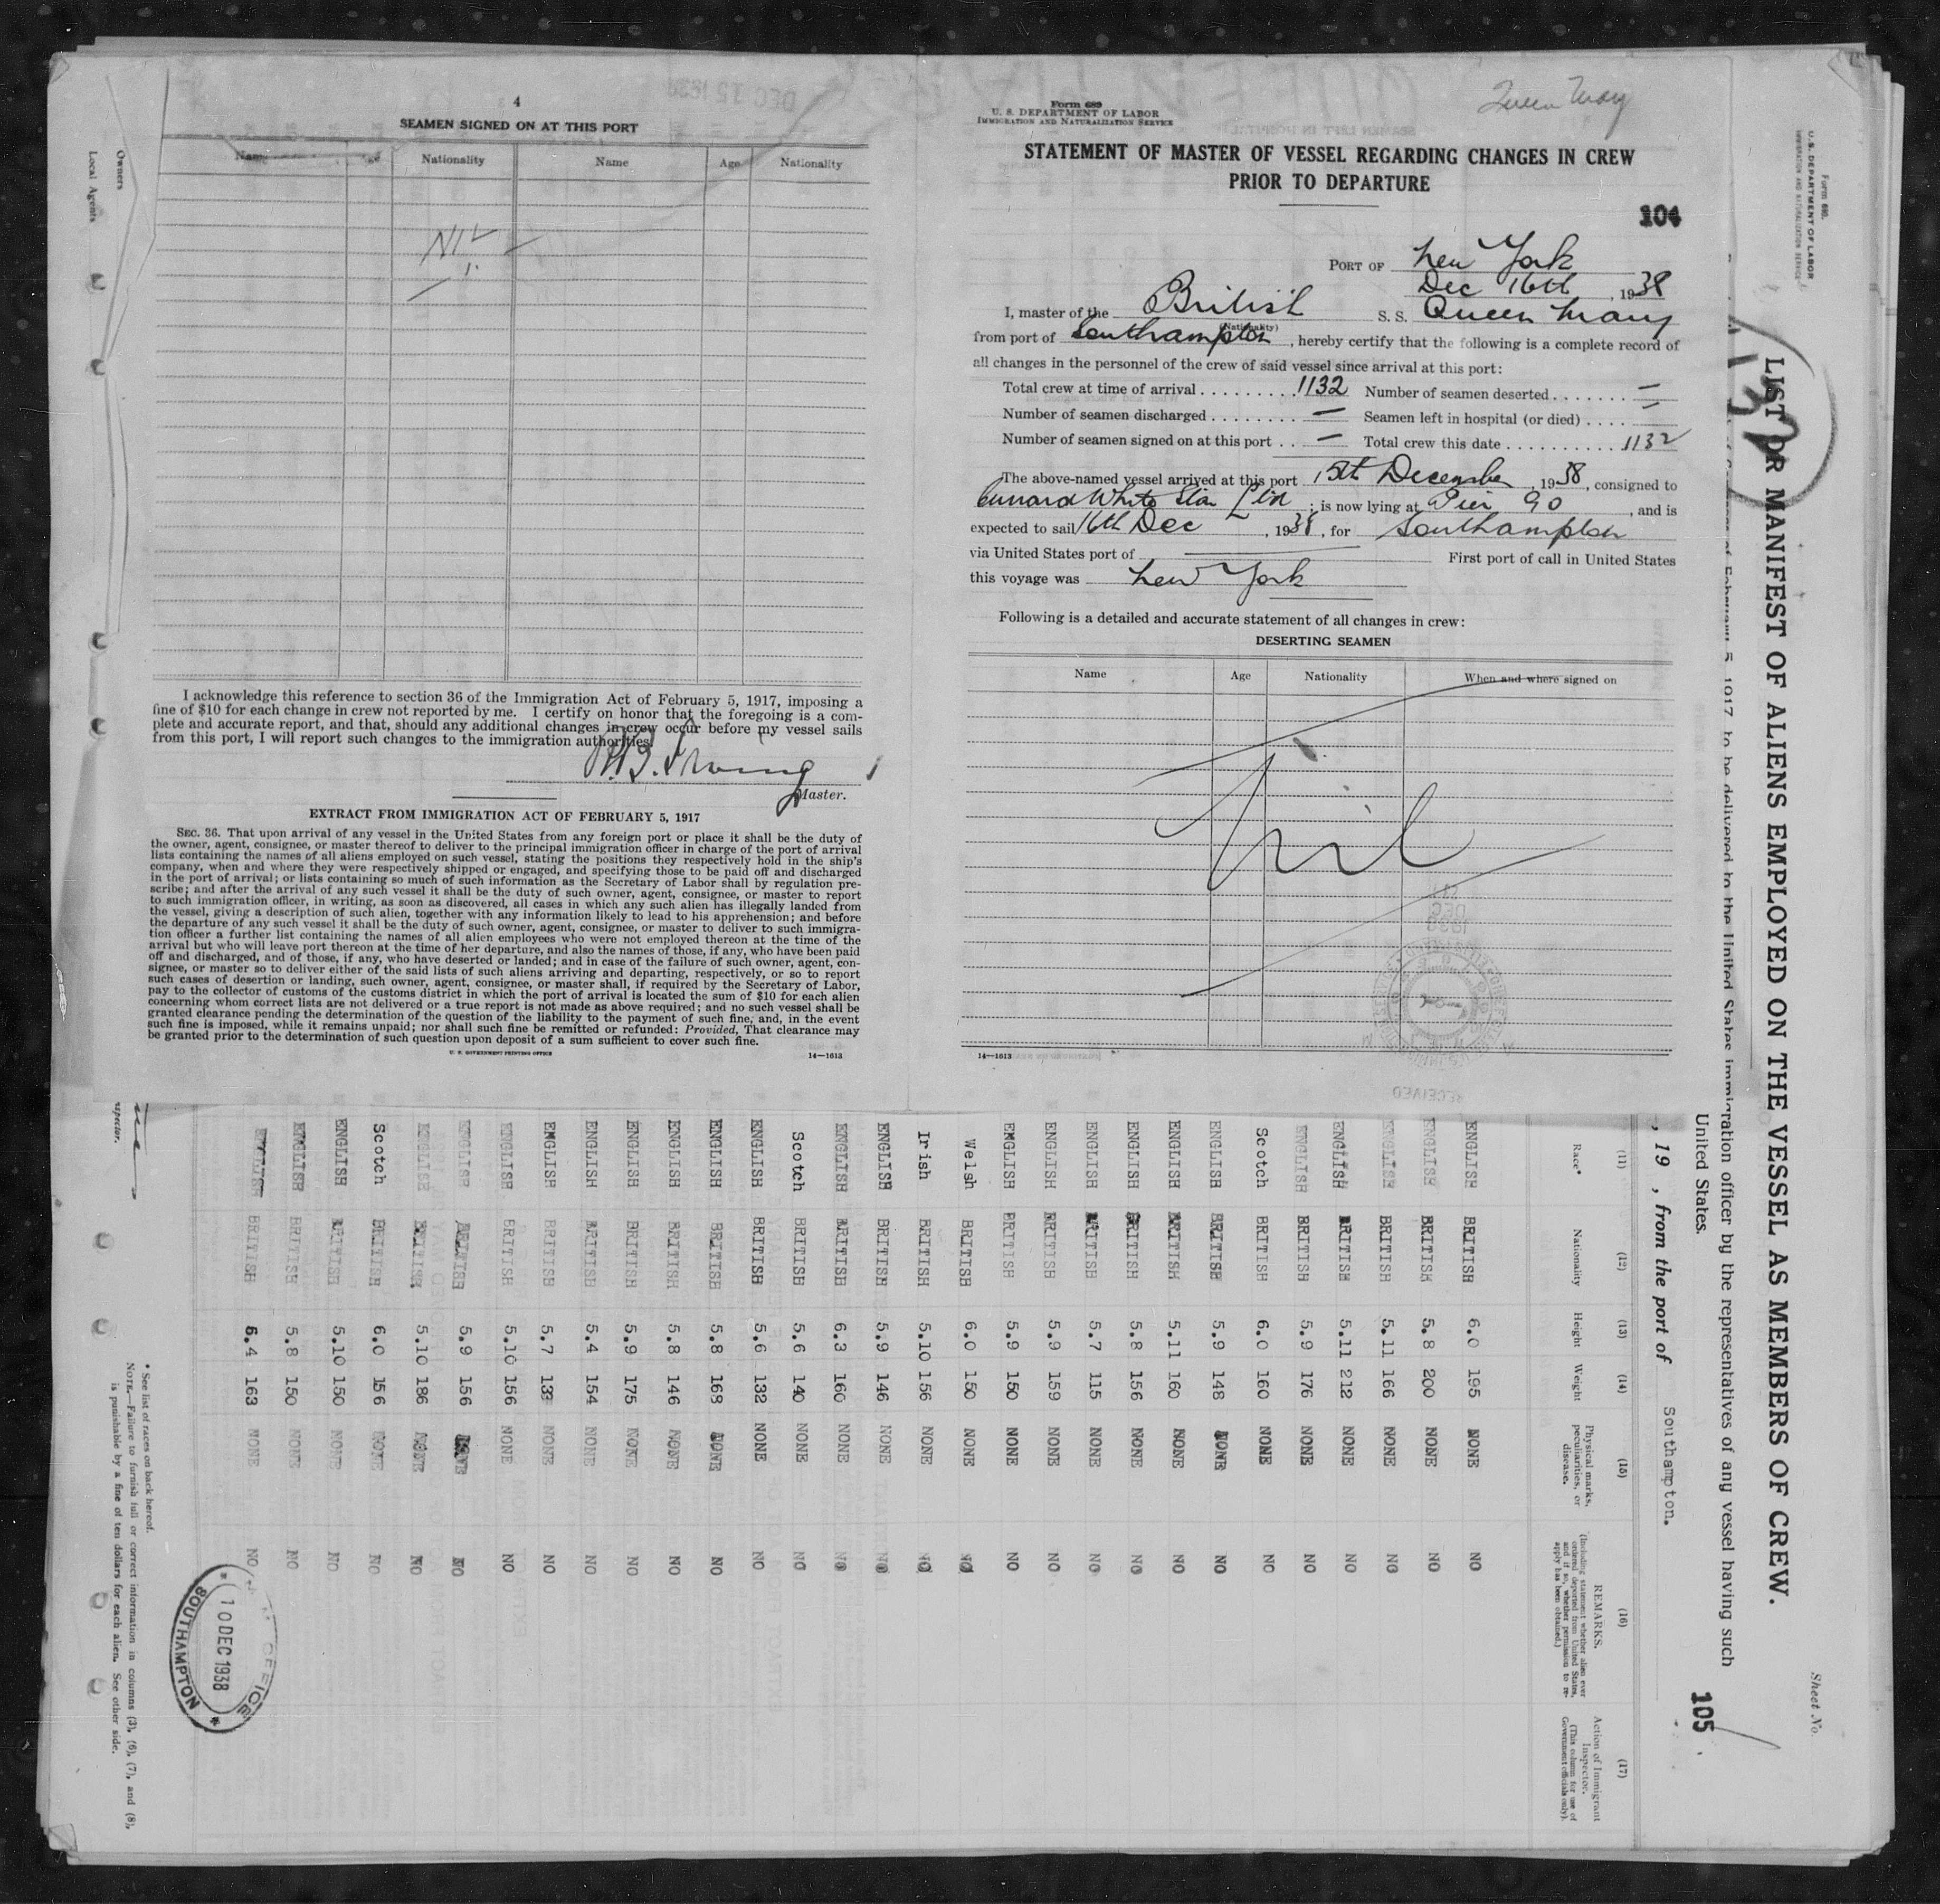 4
SEAMEN SIGNED ON AT THIS PORT
Name Age Nationality Name Age Nationality
NIL
I acknowledge this reference to section 36 of the Immigration Act of February 5, 1917, imposing a
fine of $10 for each change in crew not reported by me. I certify on honor that the foregoing is a com-
plete and accurate report, and that, should any additional changes in crew occur before my vessel sails
from this port, I will report such changes to the immigration authorities.
Master.
EXTRACT FROM IMMIGRATION ACT OF FEBRUARY 5, 1917
SEC. 36. That upon arrival of any vessel in the United States from any foreign port or place it shall be the duty of
the owner, agent, consignee, or master thereof to deliver to the principal immigration officer in charge of the port of arrival
lists containing the names of all aliens employed on such vessel, stating the positions they respectively hold in the ship's
company, when and where they were respectively shipped or engaged, and specifying those to be paid off and discharged
in the port of arrival; or lists containing so much of such information as the Secretary of Labor shall by regulation pre-
scribe; and after the arrival of any such vessel it shall be the duty of such owner, agent, consignee, or master to report
to such immigration officer, in writing, as soon as discovered, all cases in which any such alien has illegally landed from
the vessel, giving a description of such alien, together with any information likely to lead to his apprehension; and before
the departure of any such vessel it shall be the duty of such owner, agent, consignee, or master to deliver to such immigra-
tion officer a further list containing the names of all alien employees who were not employed thereon at the time of the
arrival but who will leave port thereon at the time of her departure, and also the names of those, if any, who have been paid
off and discharged, and of those, if any, who have deserted or landed; and in case of the failure of such owner, agent, con-
signee, or master so to deliver either of the said lists of such aliens arriving and departing, respectively, or so to report
such cases of desertion or landing, such owner, agent, consignee, or master shall, if required by the Secretary of Labor,
pay to the collector of customs of the customs district in which the port of arrival is located the sum of $10 for each alien
concerning whom correct lists are not delivered or a true report is not made as above required; and no such vessel shall be
granted clearance pending the determination of the question of the liability to the payment of such fine, and, in the event
such fine is imposed, while it remains unpaid; nor shall such fine be remitted or refunded: Provided, That clearance may
be granted prior to the determination of such question upon deposit of a sum sufficient to cover such fine.
U. S. GOVERNMENT PRINTING OFFICE 14—1613
Owners
Local Agents
Queen Mary
Form 689
U. S. DEPARTMENT OF LABOR
IMMIGRATION AND NATURALIZATION SERVICE
STATEMENT OF MASTER OF VESSEL REGARDING CHANGES IN CREW
PRIOR TO DEPARTURE
104
PORT OF New York
Dec 16th, 1938
I, master of the British S. S. Queen Mary
(Nationality)
from port of Southampton, hereby certify that the following is a complete record of
all changes in the personnel of the crew of said vessel since arrival at this port:
Total crew at time of arrival . . . . . . . . . 1132 Number of seamen deserted . . . . . . . —
Number of seamen discharged . . . . . . . — Seamen left in hospital (or died) . . . . —
Number of seamen signed on at this port . . — Total crew this date . . . . . . . . . . 1132
The above-named vessel arrived at this port 15th December, 1938, consigned to
Cunard White Star Ltd; is now lying at Pier 90, and is
expected to sail 16th Dec, 1938, for Southampton
via United States port of —— First port of call in United States
this voyage was New York
Following is a detailed and accurate statement of all changes in crew:
DESERTING SEAMEN
Name Age Nationality When and where signed on
Nil
14—1613
Form 680
U.S. DEPARTMENT OF LABOR
IMMIGRATION AND NATURALIZATION SERVICE
Sheet No.
LIST OR MANIFEST OF ALIENS EMPLOYED ON THE VESSEL AS MEMBERS OF CREW.
of February 5, 1917, to be delivered to the United States immigration officer by the representatives of any vessel having such
United States.
105
, 19 , from the port of Southampton.
(11) (12) (13) (14) (15) (16) (17)
Race* Nationality Height Weight Physical marks, peculiarities, or disease. REMARKS. (Including statement whether alien ever ordered deported from United States, and if so, whether permission to re-apply has been obtained.) Action of Immigrant Inspector. (This column for use of Government officials only).
ENGLISH BRITISH 6.0 195 NONE NO
ENGLISH BRITISH 5.8 200 NONE NO
ENGLISH BRITISH 5.11 166 NONE NO
ENGLISH BRITISH 5.11 212 NONE NO
ENGLISH BRITISH 5.9 176 NONE NO
Scotch BRITISH 6.0 160 NONE NO
ENGLISH BRITISH 5.9 148 NONE NO
ENGLISH BRITISH 5.11 160 NONE NO
ENGLISH BRITISH 5.8 156 NONE NO
ENGLISH BRITISH 5.7 115 NONE NO
ENGLISH BRITISH 5.9 159 NONE NO
ENGLISH BRITISH 5.9 150 NONE NO
Welsh BRITISH 6.0 150 NONE NO
Irish BRITISH 5.10 156 NONE NO
ENGLISH BRITISH 5.9 146 NONE NO
ENGLISH BRITISH 6.3 160 NONE NO
Scotch BRITISH 5.6 140 NONE NO
ENGLISH BRITISH 5.6 132 NONE NO
ENGLISH BRITISH 5.8 168 NONE NO
ENGLISH BRITISH 5.8 146 NONE NO
ENGLISH BRITISH 5.9 175 NONE NO
ENGLISH BRITISH 5.4 154 NONE NO
ENGLISH BRITISH 5.7 133 NONE NO
ENGLISH BRITISH 5.10 156 NONE NO
ENGLISH BRITISH 5.9 156 NONE NO
ENGLISH BRITISH 5.10 186 NONE NO
Scotch BRITISH 6.0 156 NONE NO
ENGLISH BRITISH 5.10 150 NONE NO
ENGLISH BRITISH 5.8 150 NONE NO
ENGLISH BRITISH 5.4 163 NONE NO
OFFICE
10 DEC 1938
SOUTHAMPTON
* See list of races on back hereof.
NOTE.—Failure to furnish full or correct information in columns (3), (6), (7), and (8),
is punishable by a fine of ten dollars for each alien. See other side.